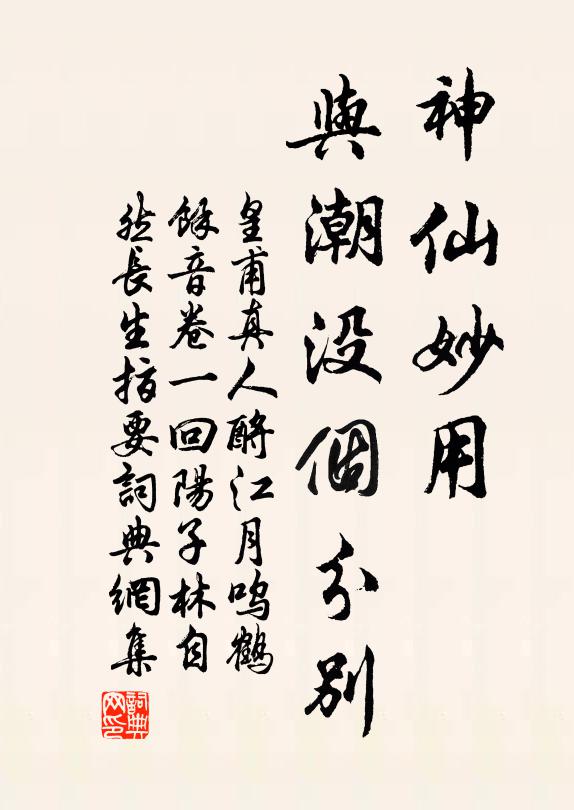 神仙妙用
與潮没個分别
皇甫真人酹江月鸣鶴
餘音卷一回陽子林自
然長生指要詞典網集
詞典
网印